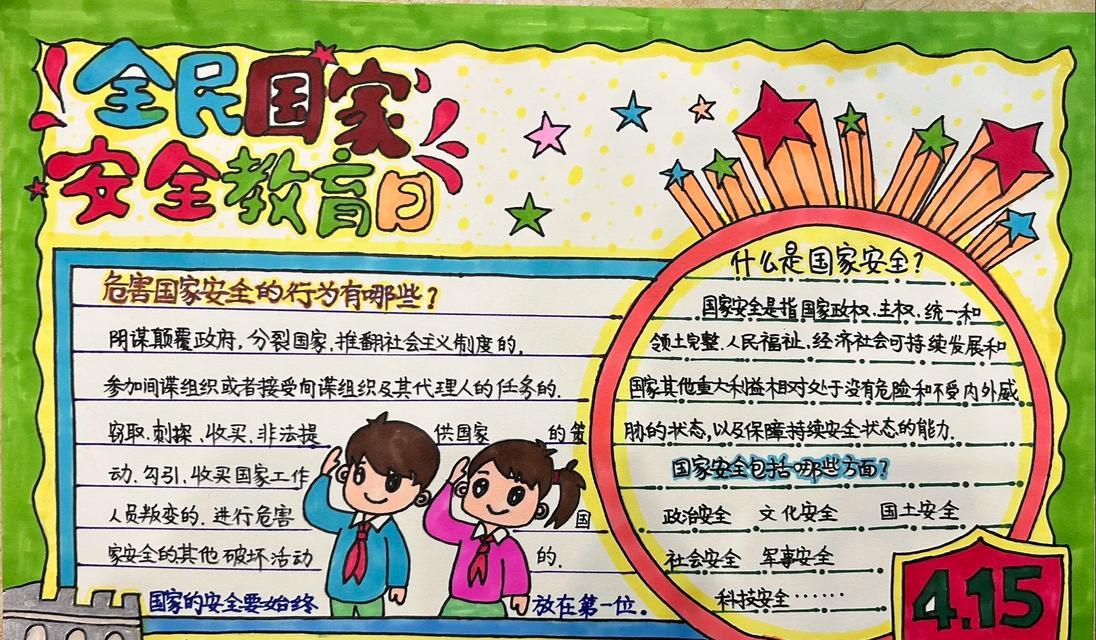 全民国家
安全教育日
危害国家安全的行为有哪些?
阴谋颠覆政府,分裂国家,推翻社会主义制度的,
参加间谍组织或者接受间谍组织及其代理人的任务的.
窃取.刺探.收买.非法提供国家 的策
动.勾引.收买国家工作
人员叛变的.进行危害 国
家安全的其他破坏活动 的.
国家的安全要始终 放在第一位.
什么是国家安全?
国家安全是指国家政权.主权.统一和
领土完整.人民福祉.经济社会可持续发展和
国家其他重大利益相对处于没有危险和不受内外威
胁的状态,以及保障持续安全状态的能力.
国家安全包括哪些方面?
政治安全 文化安全 国土安全
社会安全 军事安全
科技安全······
4.15